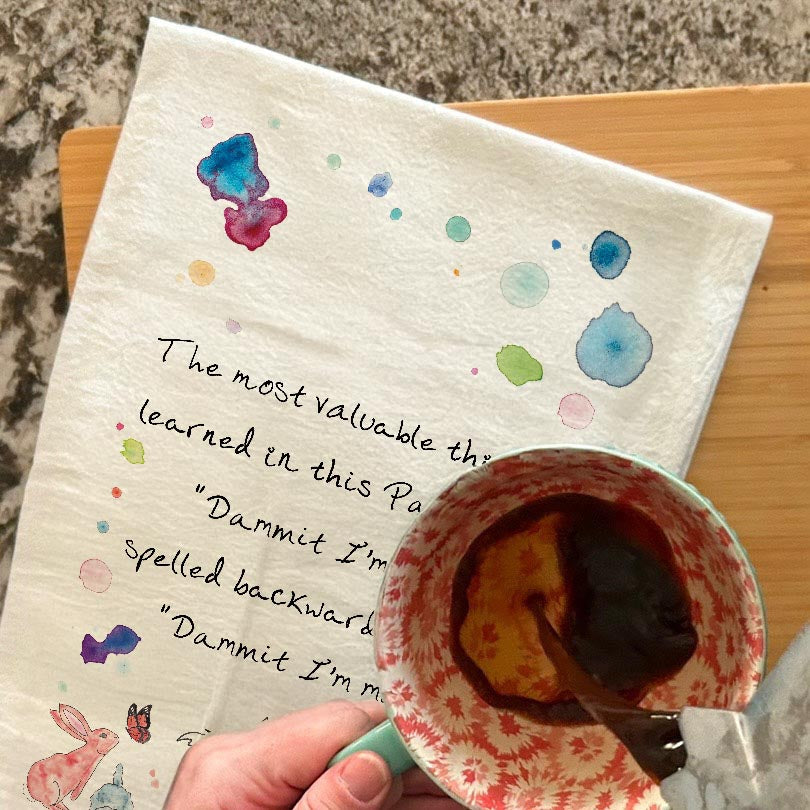 The most valuable
learned in this
"Dammit I'm
spelled backward
"Dammit I'm